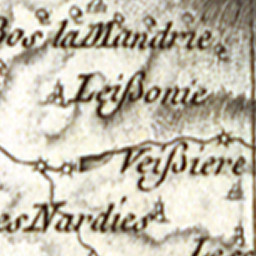 Bos la Mandrie
Leißonie
Veißiere
es Nardies